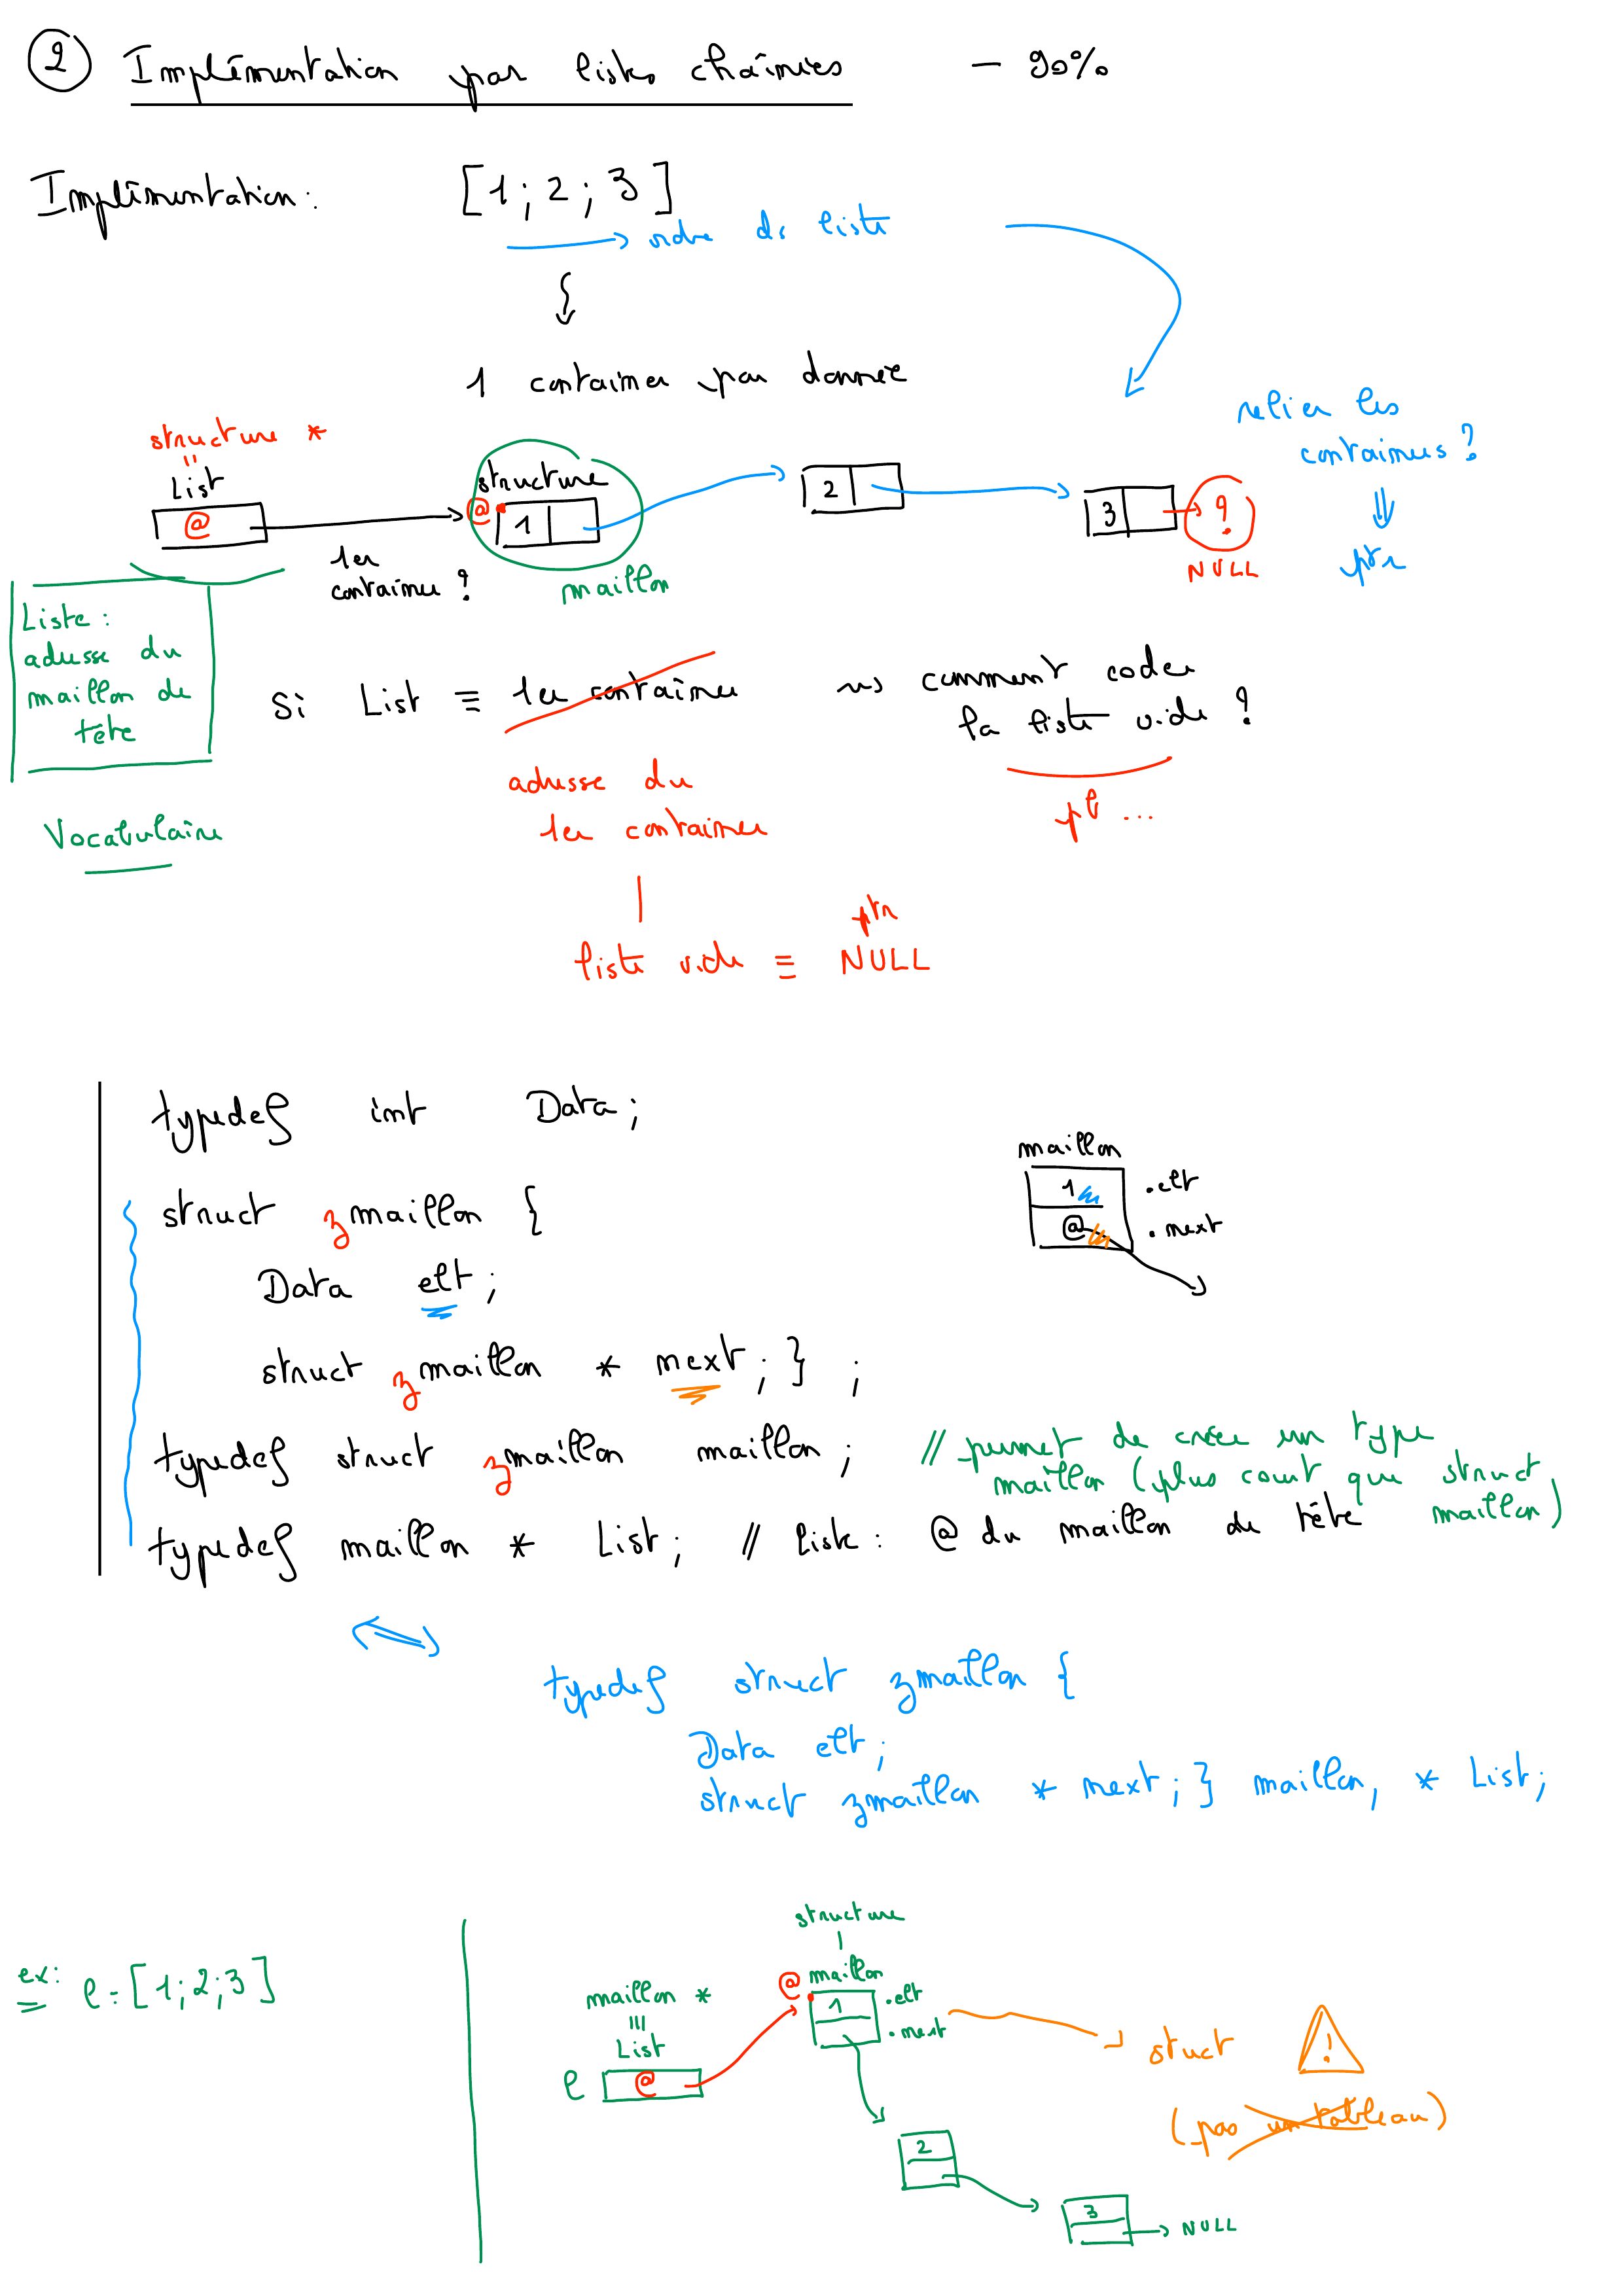 2 Implémentation par listes chaînées — 90%
Implémentation: [1; 2; 3]
ordre de liste
1 container par donnée
relier les
containers ?
ptr
structure *
=
List
@
1er
container ?
structure
@
1
maillon
2
3
?
NULL
Liste :
adresse du
maillon de
tête
Vocabulaire
Si List ≡ 1er container
comment coder
la liste vide ?
adresse du
1er container
pb ...
liste vide ≡ ptr NULL
typedef int Data;
struct zmaillon {
Data elt;
struct zmaillon * next; } ;
typedef struct zmaillon maillon; // permet de créer un type
maillon (plus court que struct
maillon)
typedef maillon * List; // liste : @ du maillon de tête
maillon
1 .elt
@ .next
typedef struct zmaillon {
Data elt;
struct zmaillon * next; } maillon, * List;
ex: l = [1; 2; 3]
structure
@ maillon
maillon *
≡
List
l @
1 .elt
.next
struct !
(pas un tableau)
2
3 NULL